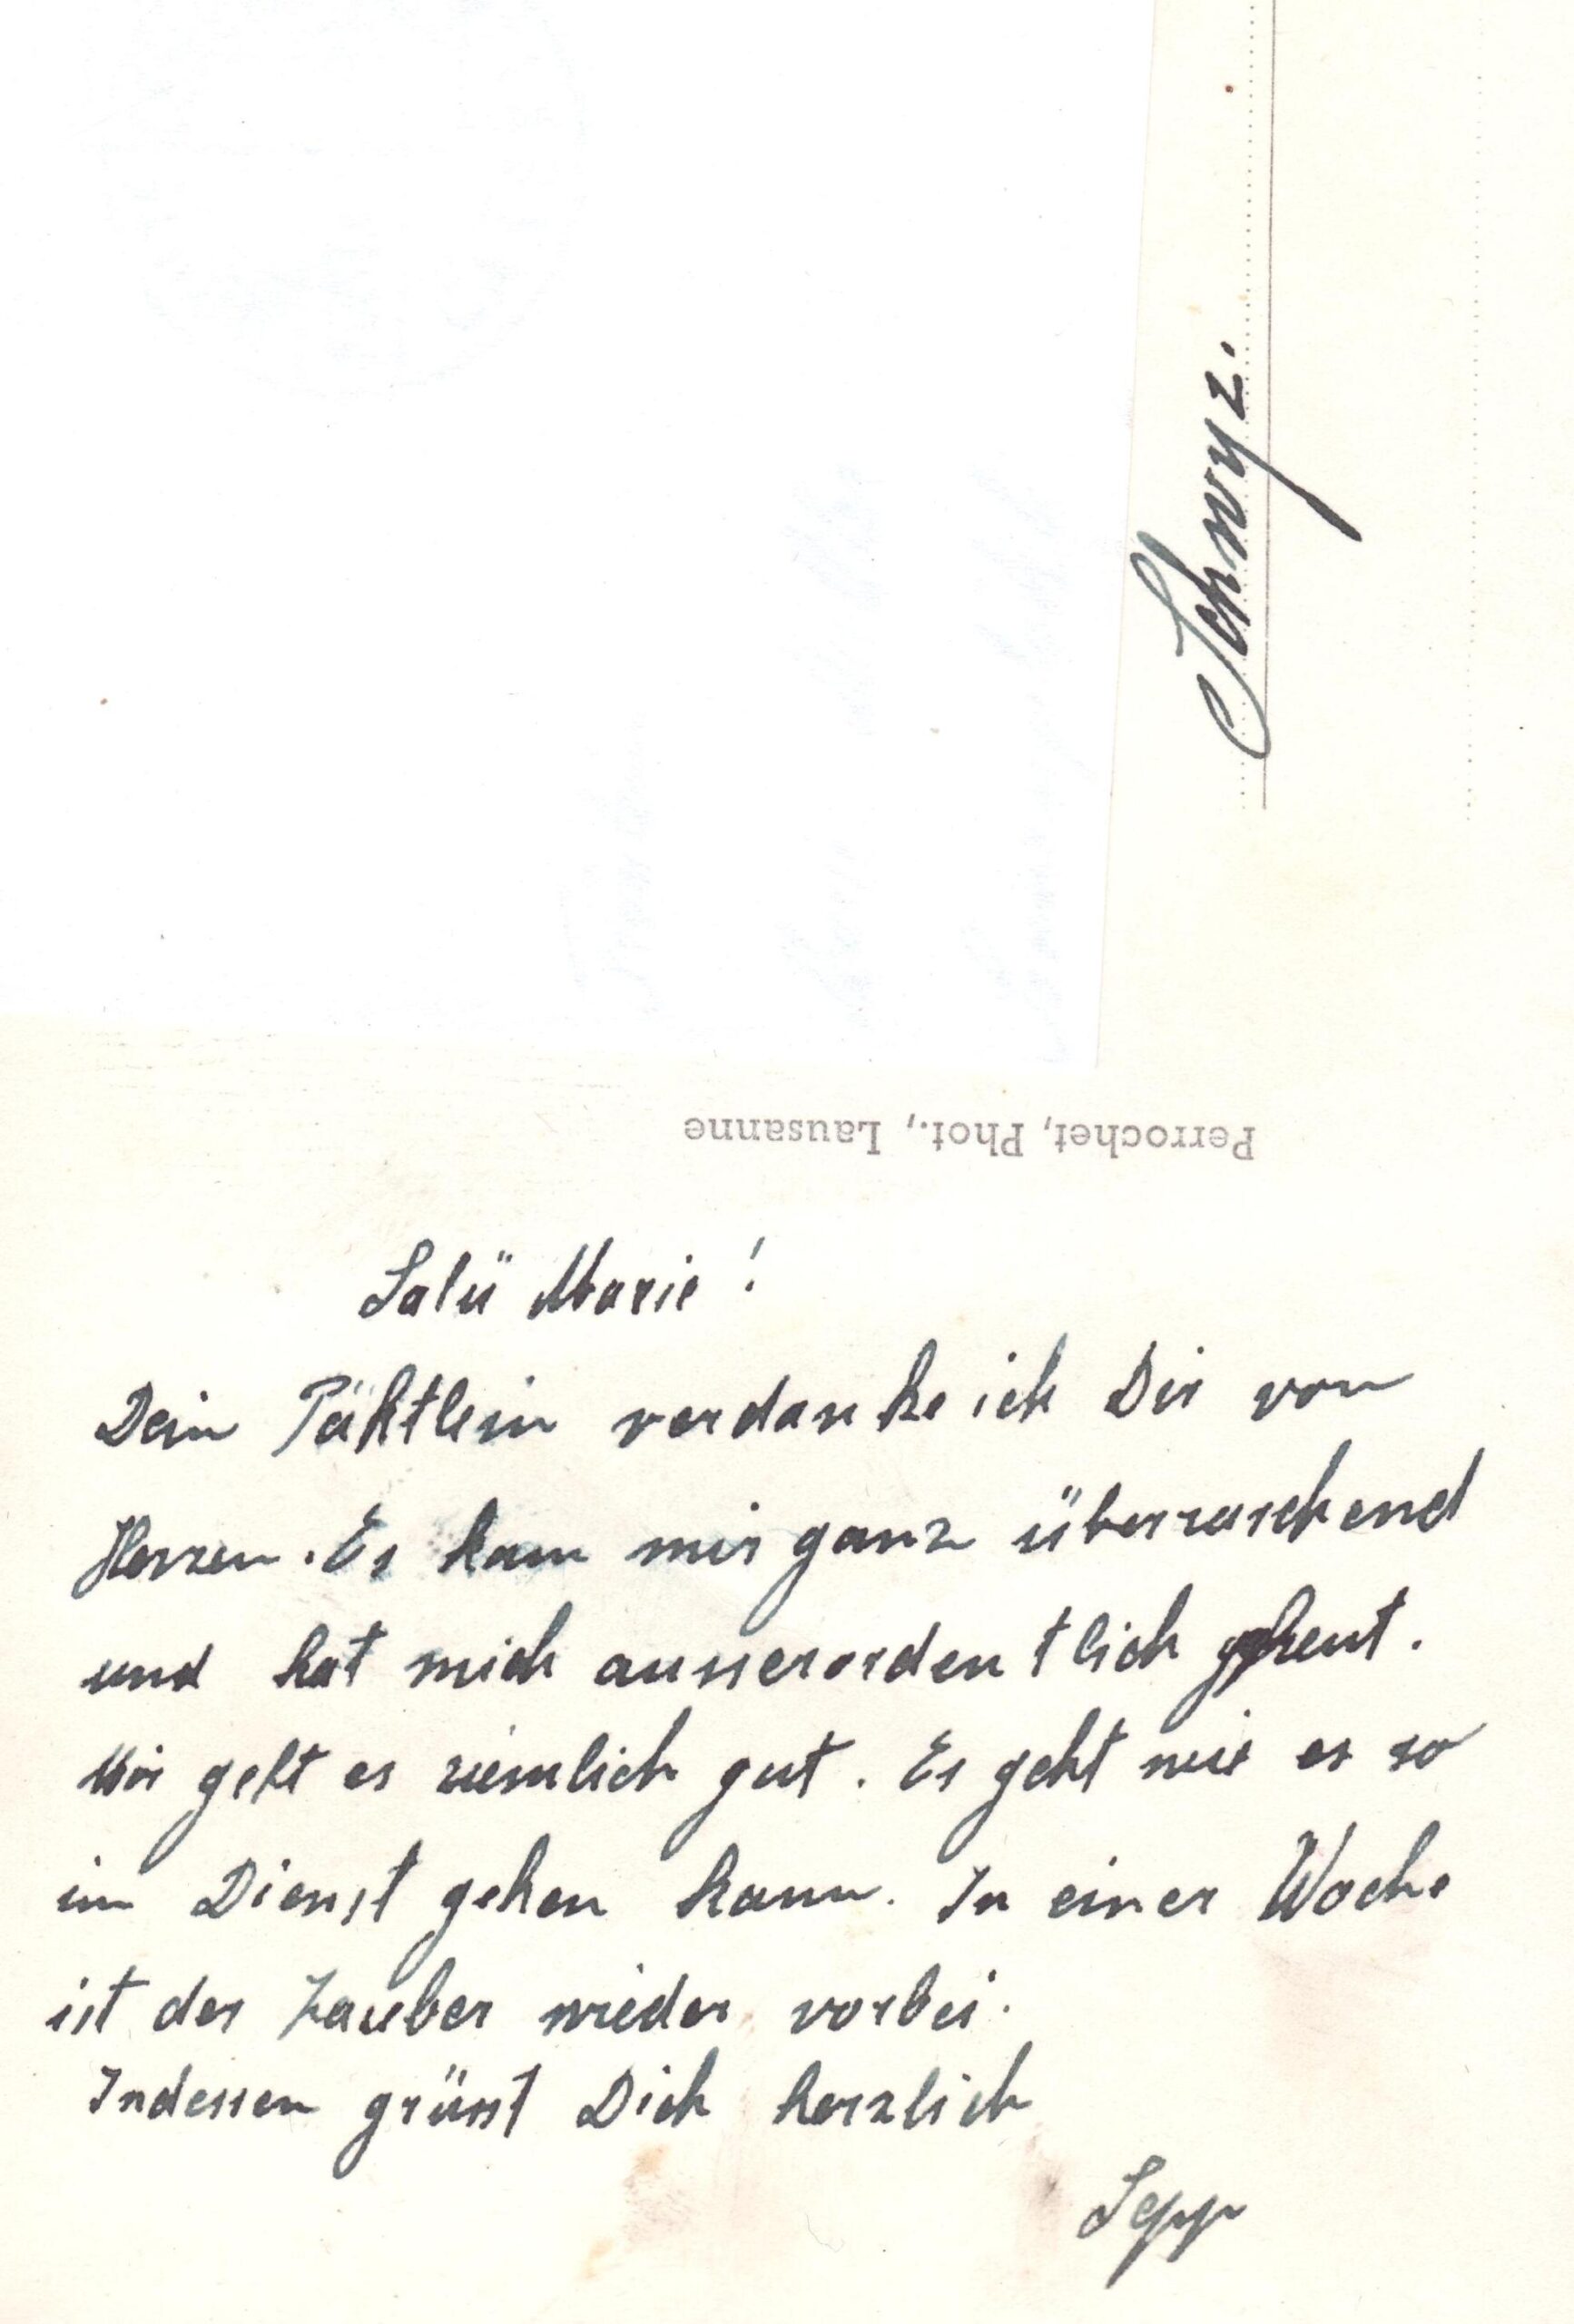 Schwyz.
Perrochet, Phot., Lausanne
Salü Marie!
Dein Päktlein verdanke ich Dir von
Herzen. Es kam mir ganz überraschend
und hat mich ausserordentlich gefreut.
Mir geht es ziemlich gut. Es geht wie es so
im Dienst gehen kann. In einer Woche
ist der Zauber wieder vorbei.
Indessen grüsst Dich herzlich
Sepp